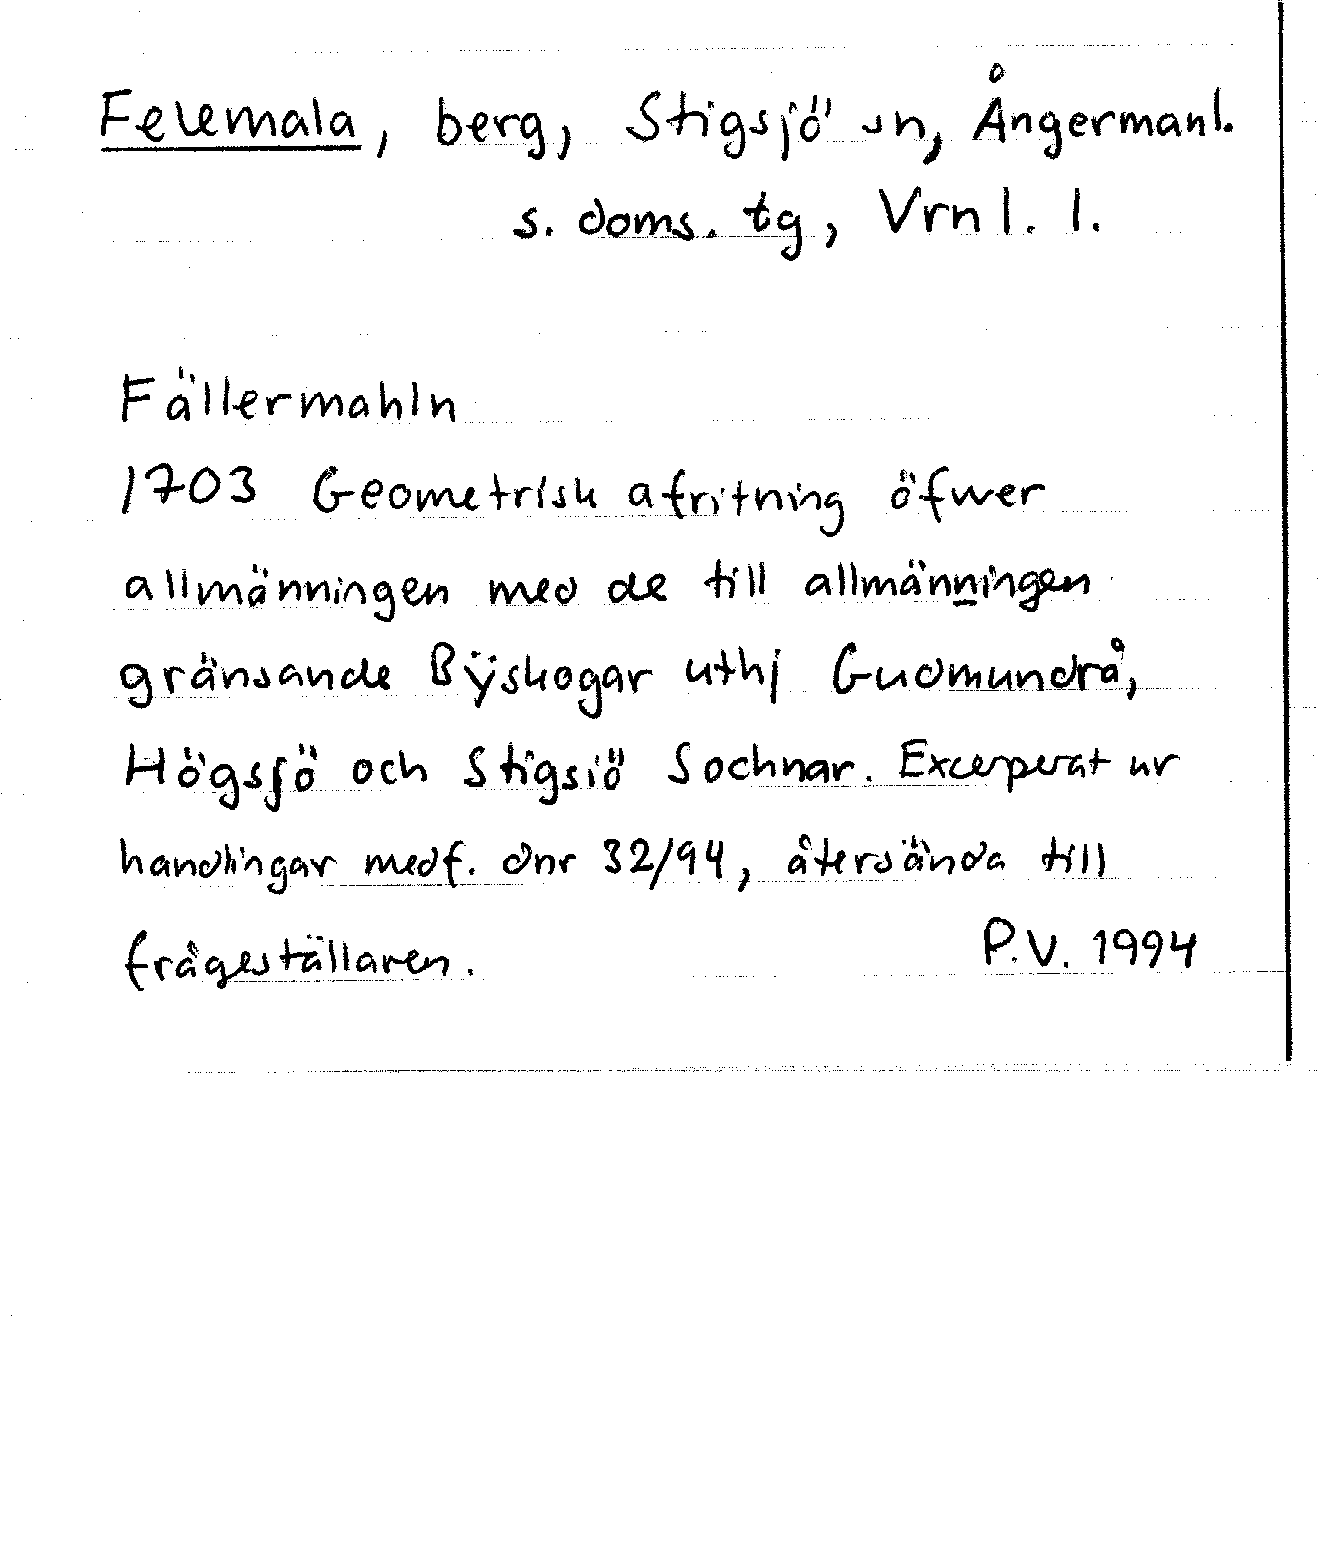 Felemala, berg, Stigsjö sn, Ångermanl.
s. doms. tg, Vrnl. l.
Fällermahln
1703 Geometrisk afritning öfwer
allmänningen med de till allmänningen
gränsande Bÿskogar uthj Gudmundrå,
Högsjö och Stigsiö Sochnar. Excerperat ur
handlingar medf. dnr 32/94, återsända till
frågeställaren. P.V. 1994